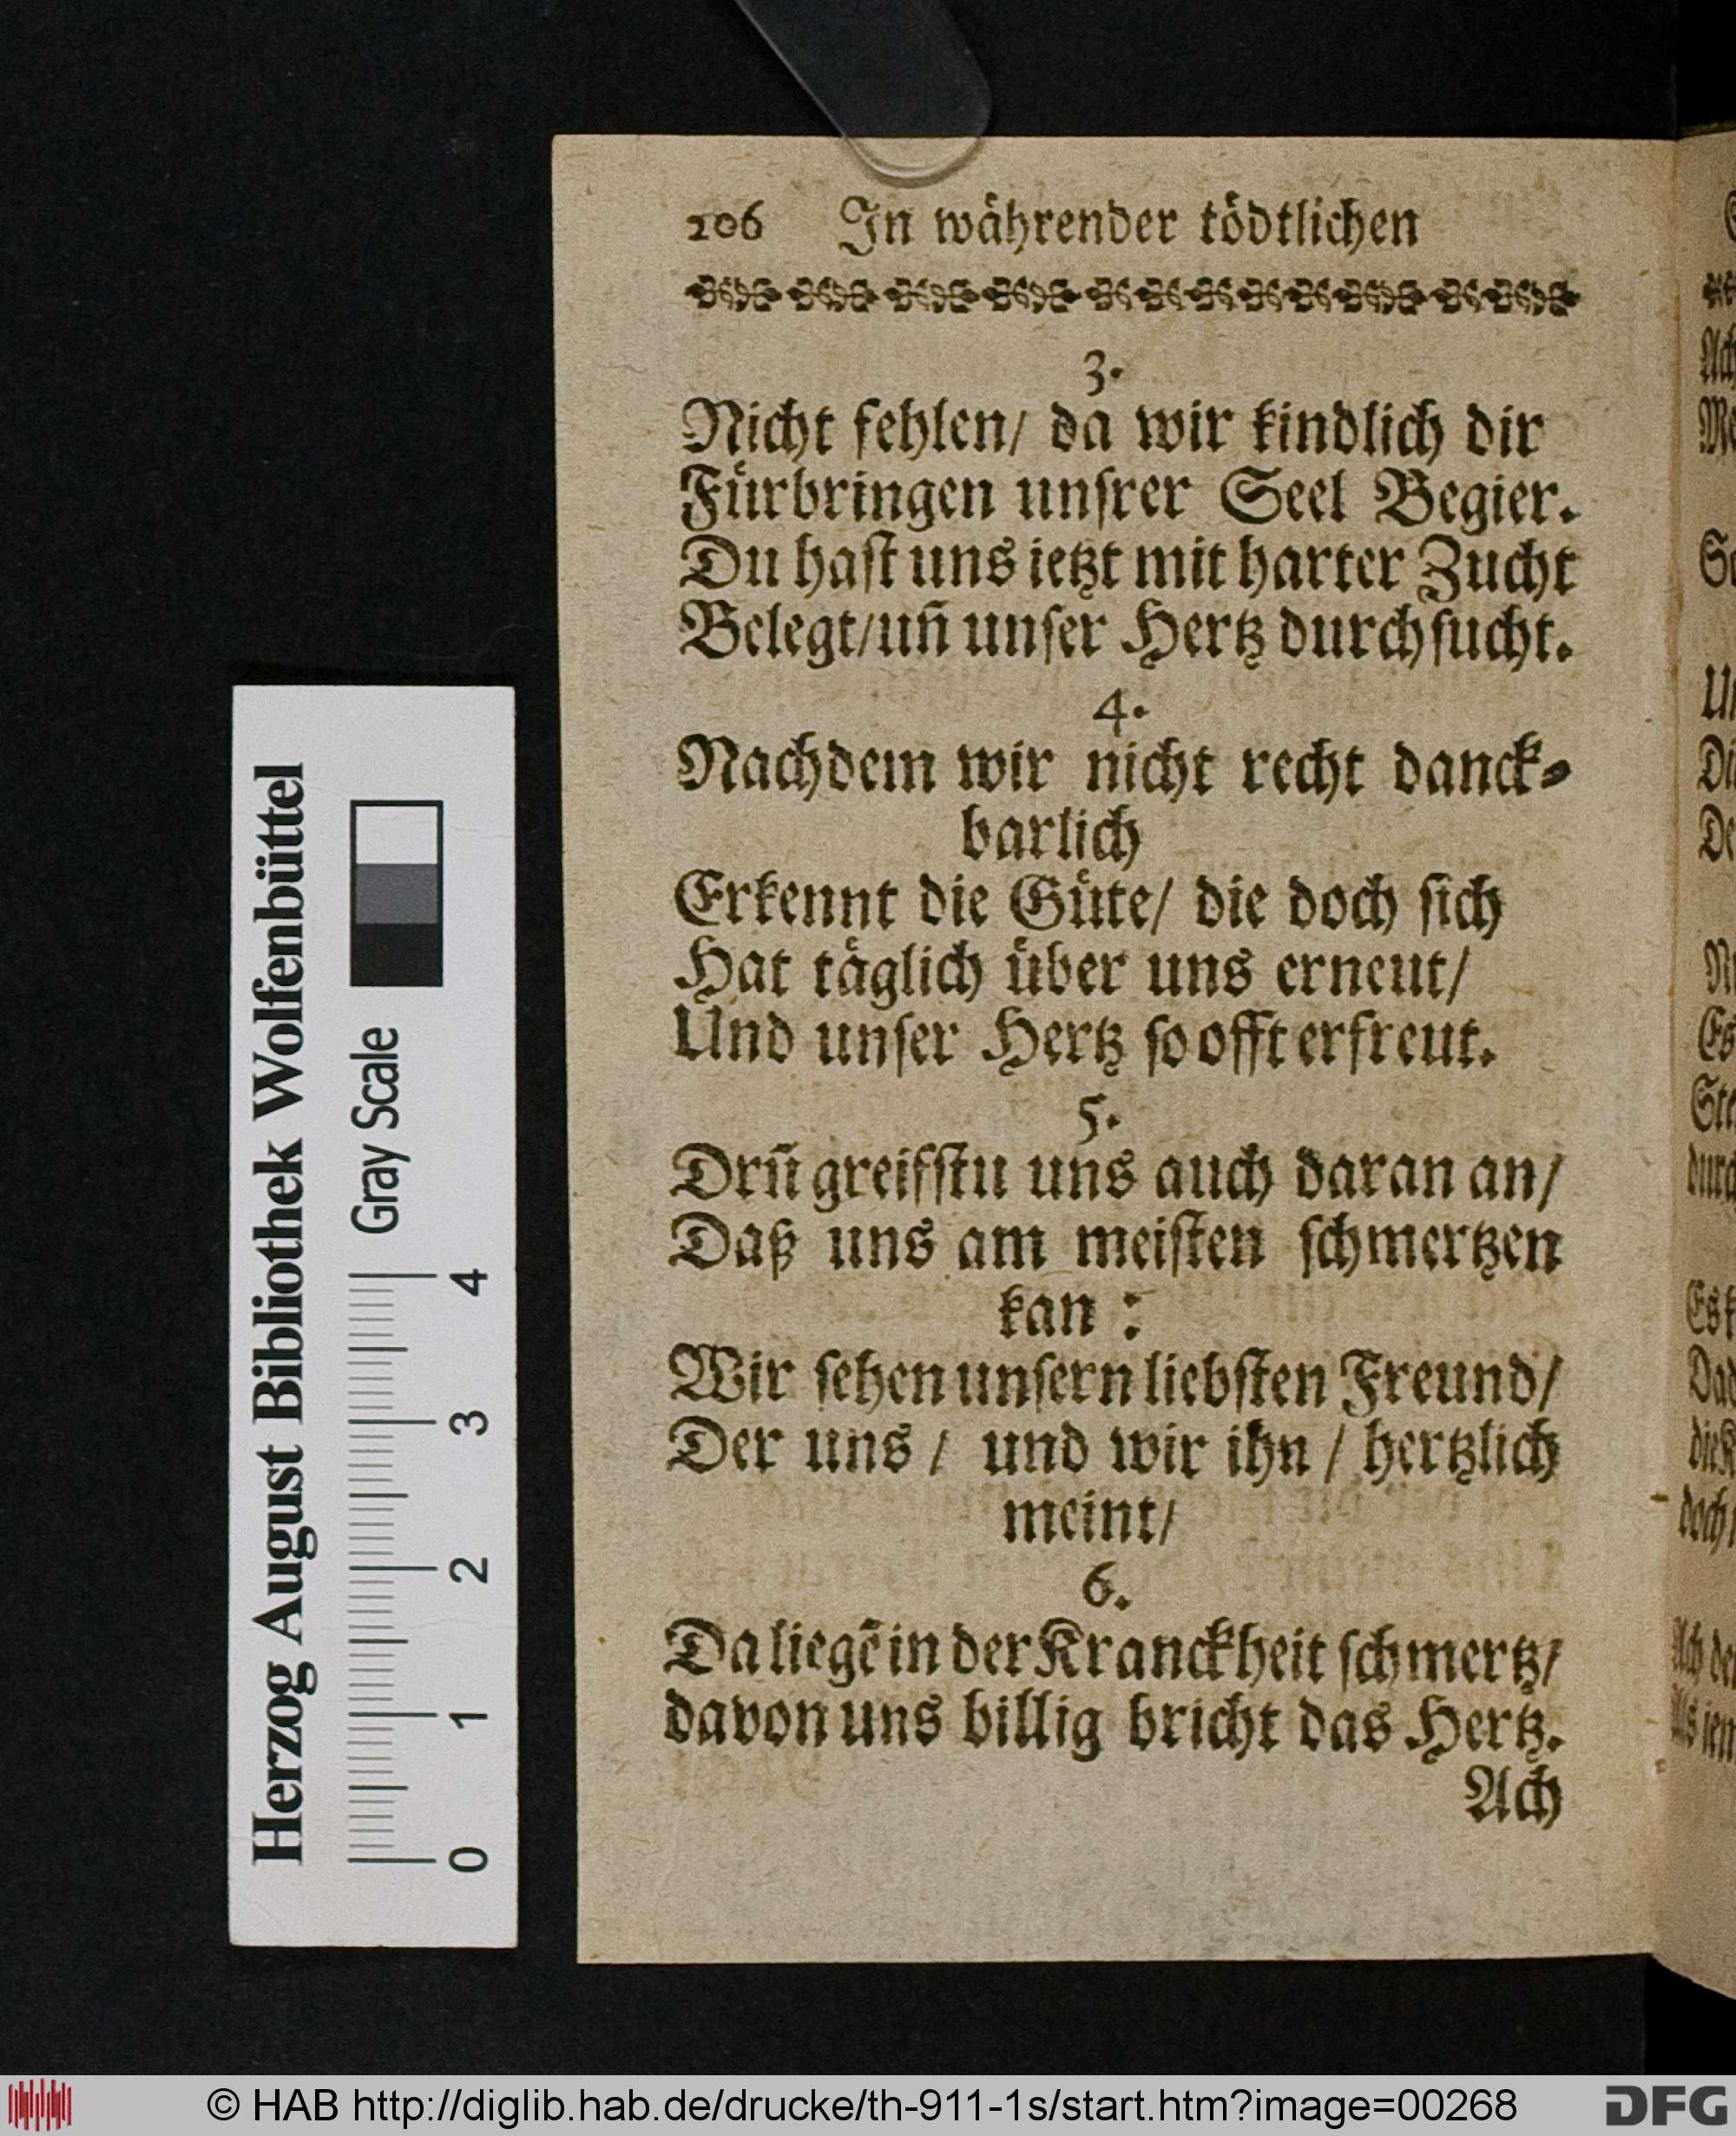 206 In währender tödtlichen
3.
Nicht fehlen/ da wir kindlich dir
Fürbringen unſrer Seel Begier.
Du haſt uns ietzt mit harter Zucht
Belegt/uñ unſer Hertz durchſucht.
4.
Nachdem wir nicht recht danck⸗
barlich
Erkennt die Güte/ die doch ſich
Hat täglich über uns erneut/
Und unſer Hertz ſo offt erfreut.
5.
Drũ greiffſtu uns auch daran an/
Daß uns am meiſten ſchmertzen
kan :
Wir ſehen unſern liebſten Freund/
Der uns / und wir ihn / hertzlich
meint/
6.
Da liegẽ in der Kranckheit ſchmertz/
davon uns billig bricht das Hertz.
Ach
Herzog August Bibliothek Wolfenbüttel
Gray Scale
0 1 2 3 4
© HAB http://diglib.hab.de/drucke/th-911-1s/start.htm?image=00268
DFG